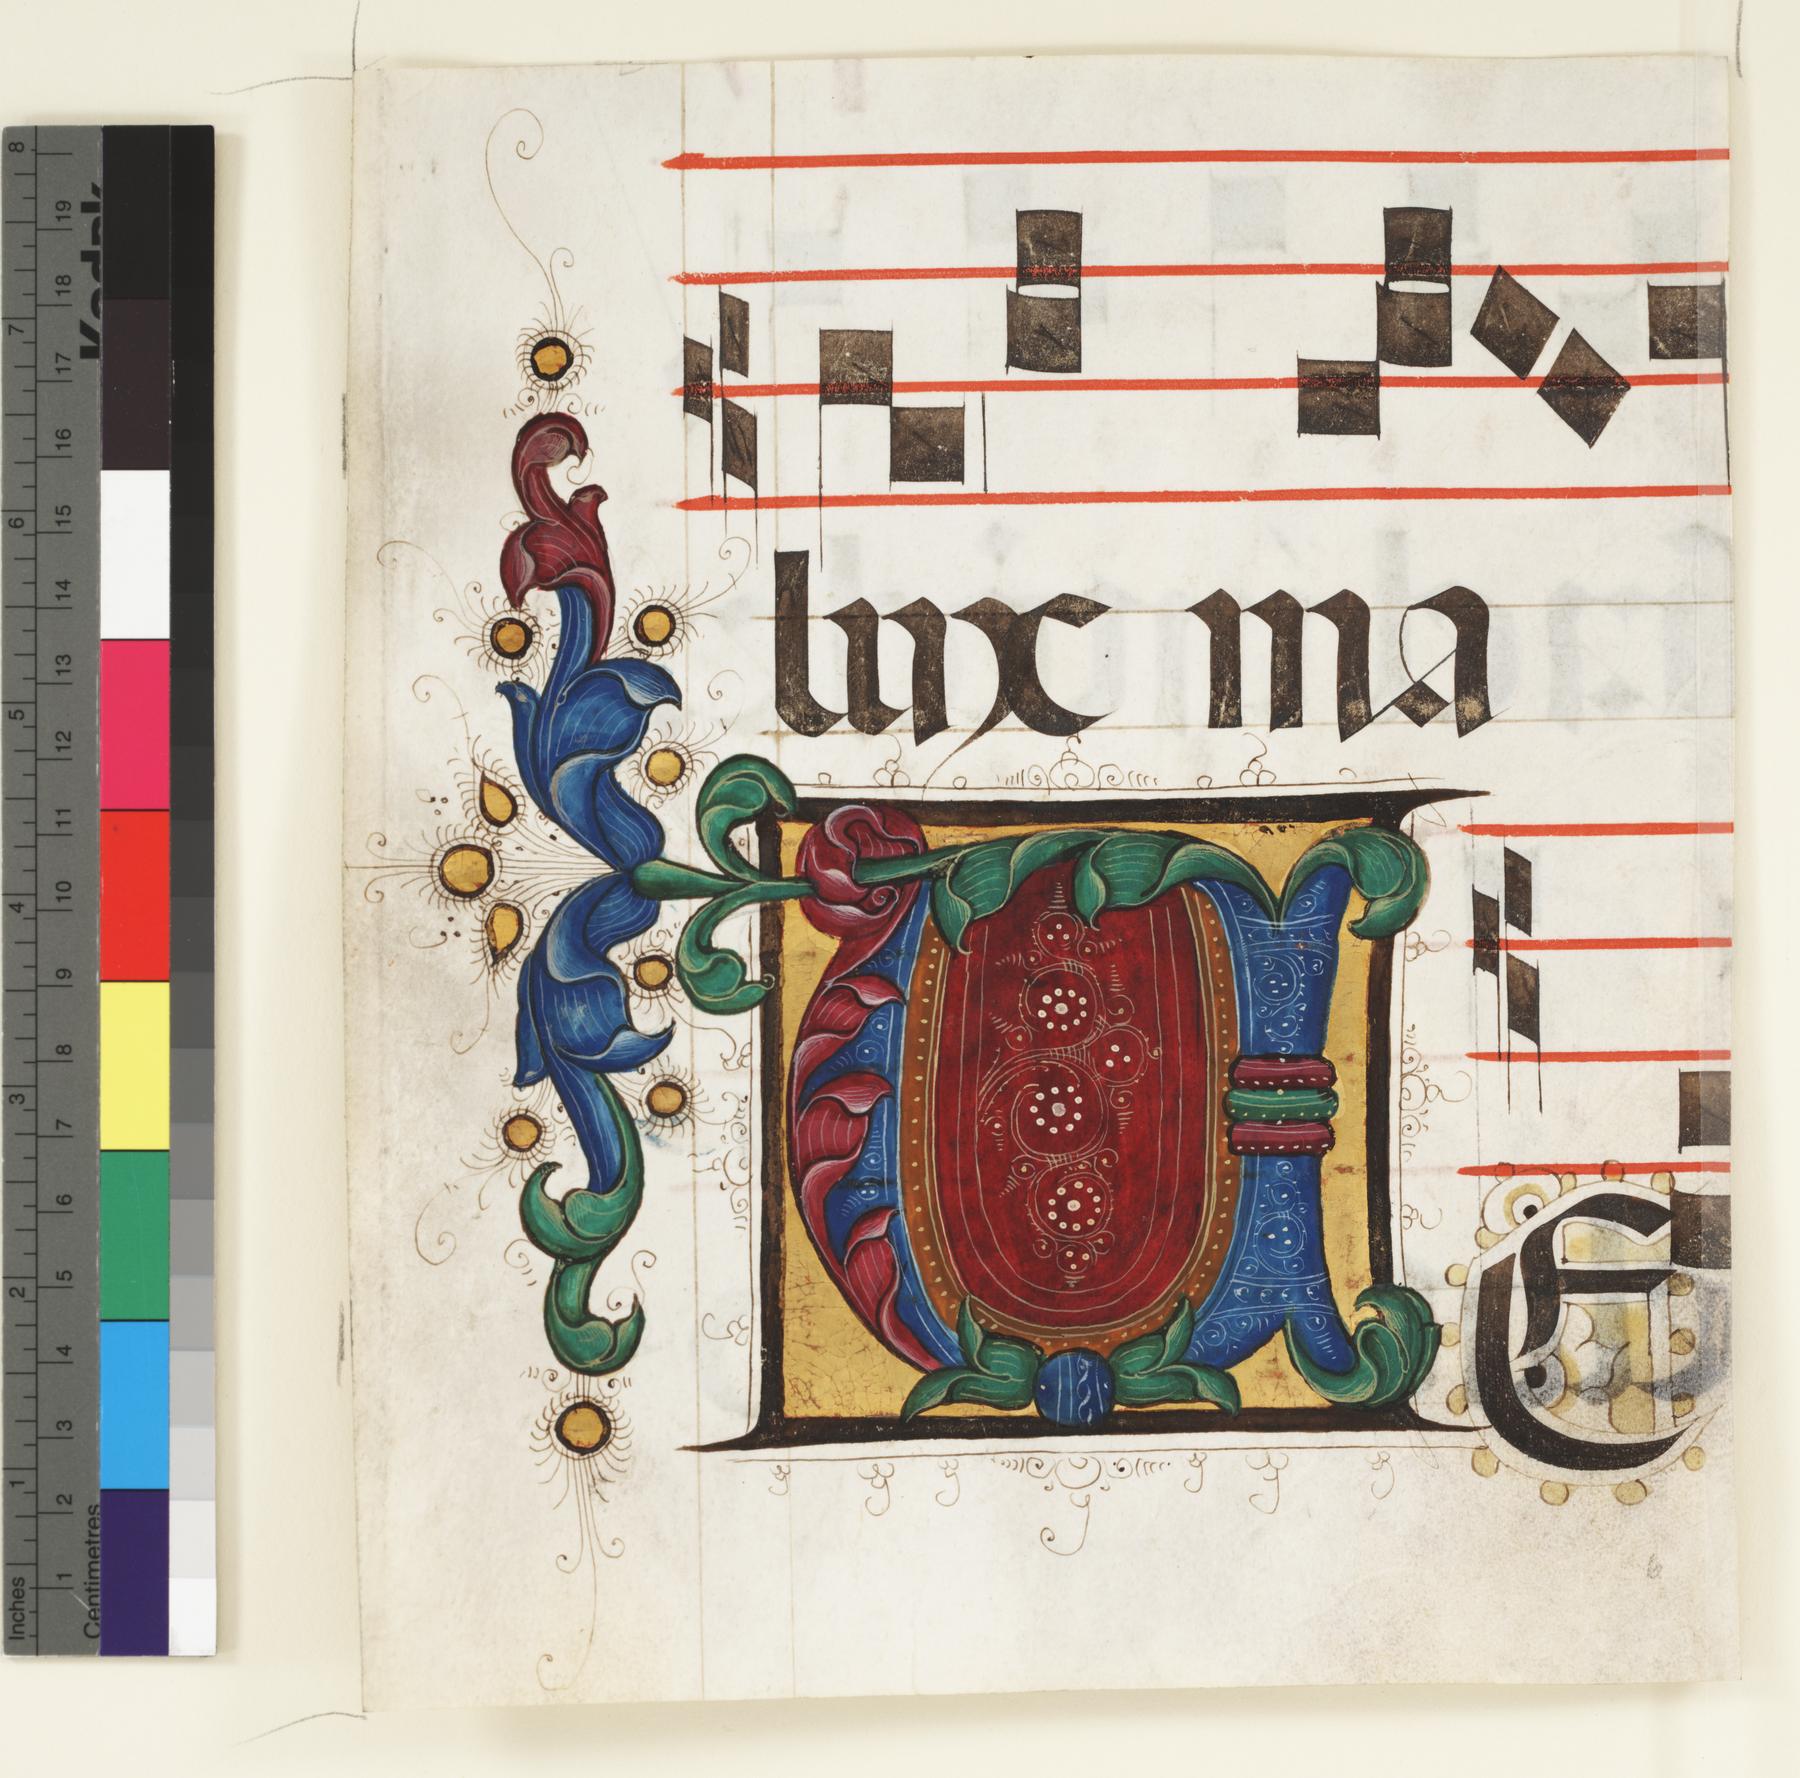 lux ma
U E
Kodak
Inches 1 2 3 4 5 6 7 8
Centimetres 1 2 3 4 5 6 7 8 9 10 11 12 13 14 15 16 17 18 19
6